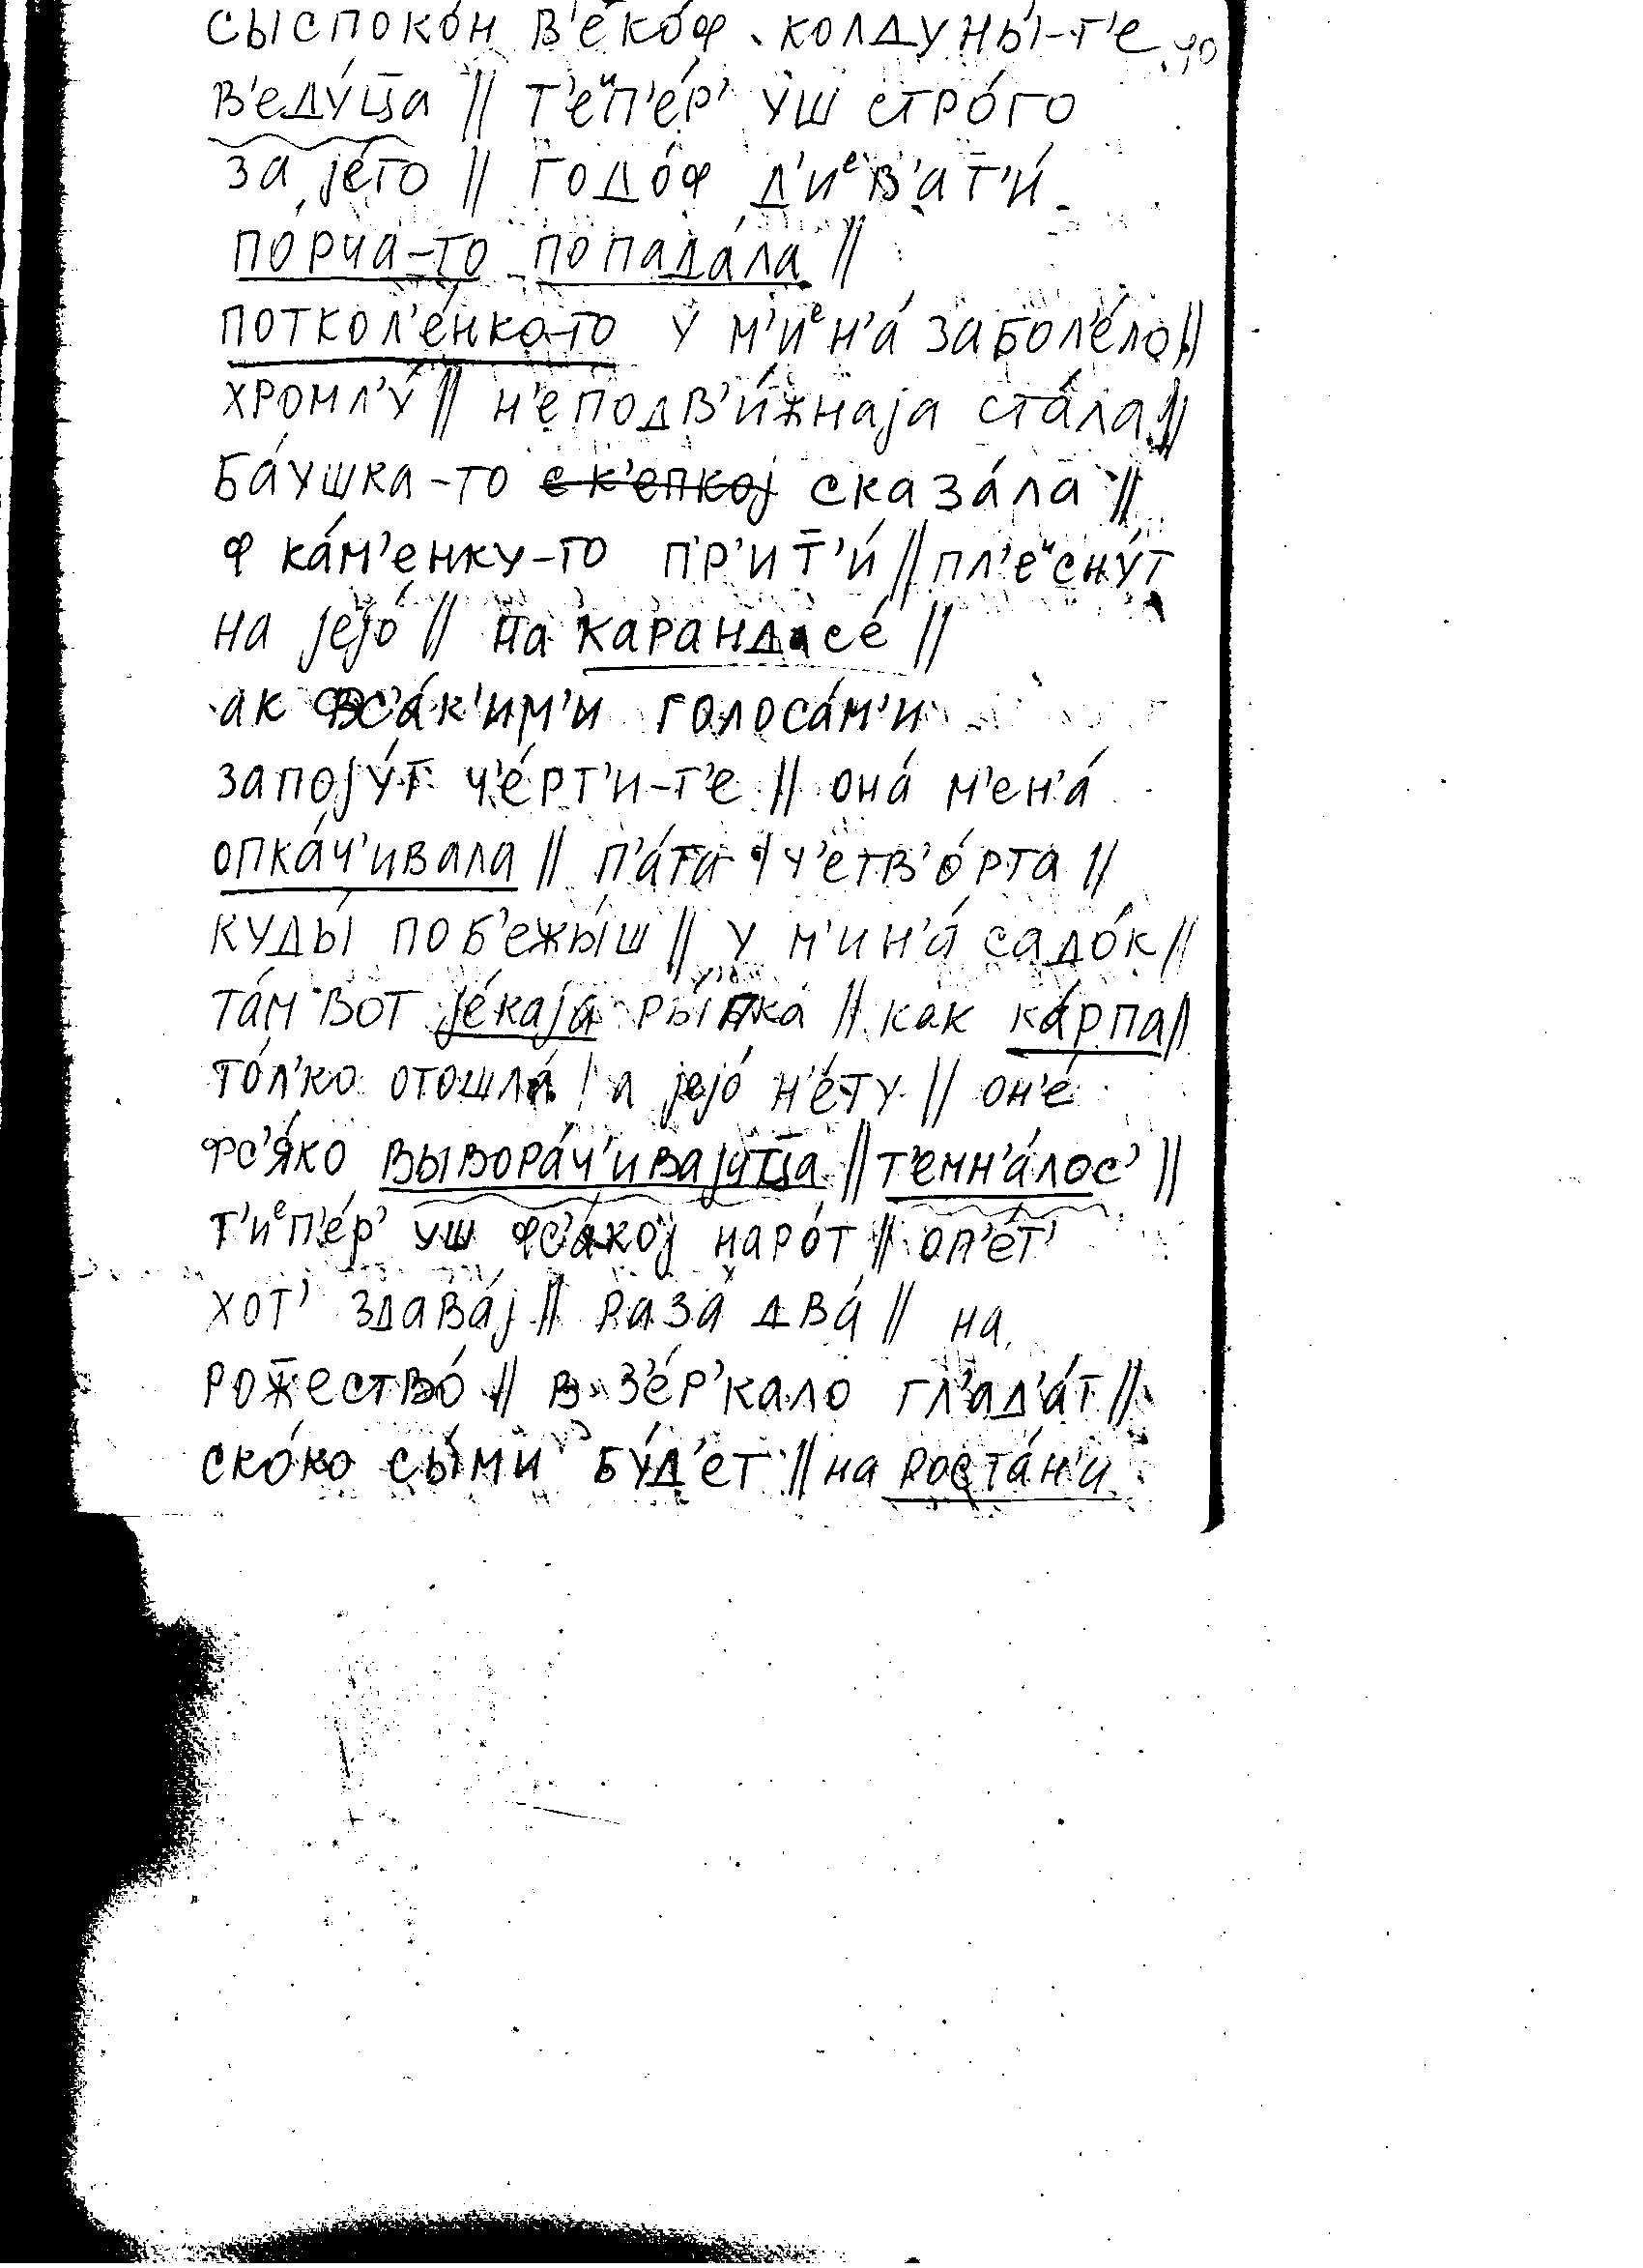 сыспоко́н в'еко́ф колдуны́-т'е
в'еду́ц̅а // т'еⁱⁱп'е́р' уш стро́го
за је́то // годо́ф д'иᵉв'ат̅'и́
по́рча-то попада́ла //
поткол'е́нка-то у м'иᵉн'а́ забол'е́ло //
хромл'у́ // н'еподв'и́жнаја ста́ла //
ба́ушка-то ~~с к'епкој~~ сказа́ла //
ф ка́м'енку-то пр'ит̅'и́ // пл'еᶦсну́т
на јејо́ // на карандасе́ //
ак вс'а́к'им'и голоса́м'и
запоју́т ч'е́рт'и-т'е // она́ м'ен'а́
опка́ч'ивала // п'а́та / ч'етв'о́рта //
куды́ поб'ежы́ш // у м'ин'а́ садо́к //
та́м вот је́каја ры́пка // как ка́рпа //
то́л'ко отошла́ / а јејо́ н'е́ту // он'е́
фс'я́ко вывора́ч'ивајутц̅а // т'емн'а́лос' //
т'иᵉп'е́р' уш фс'а́кој наро́т // оп'е́т'
хот' здава́ј // раза́ два́ // на
рож̅ество́ // в з'е́р'кало гл'ад'а́т //
ско́ко сы́ми бу́д'ет // на роста́н'и